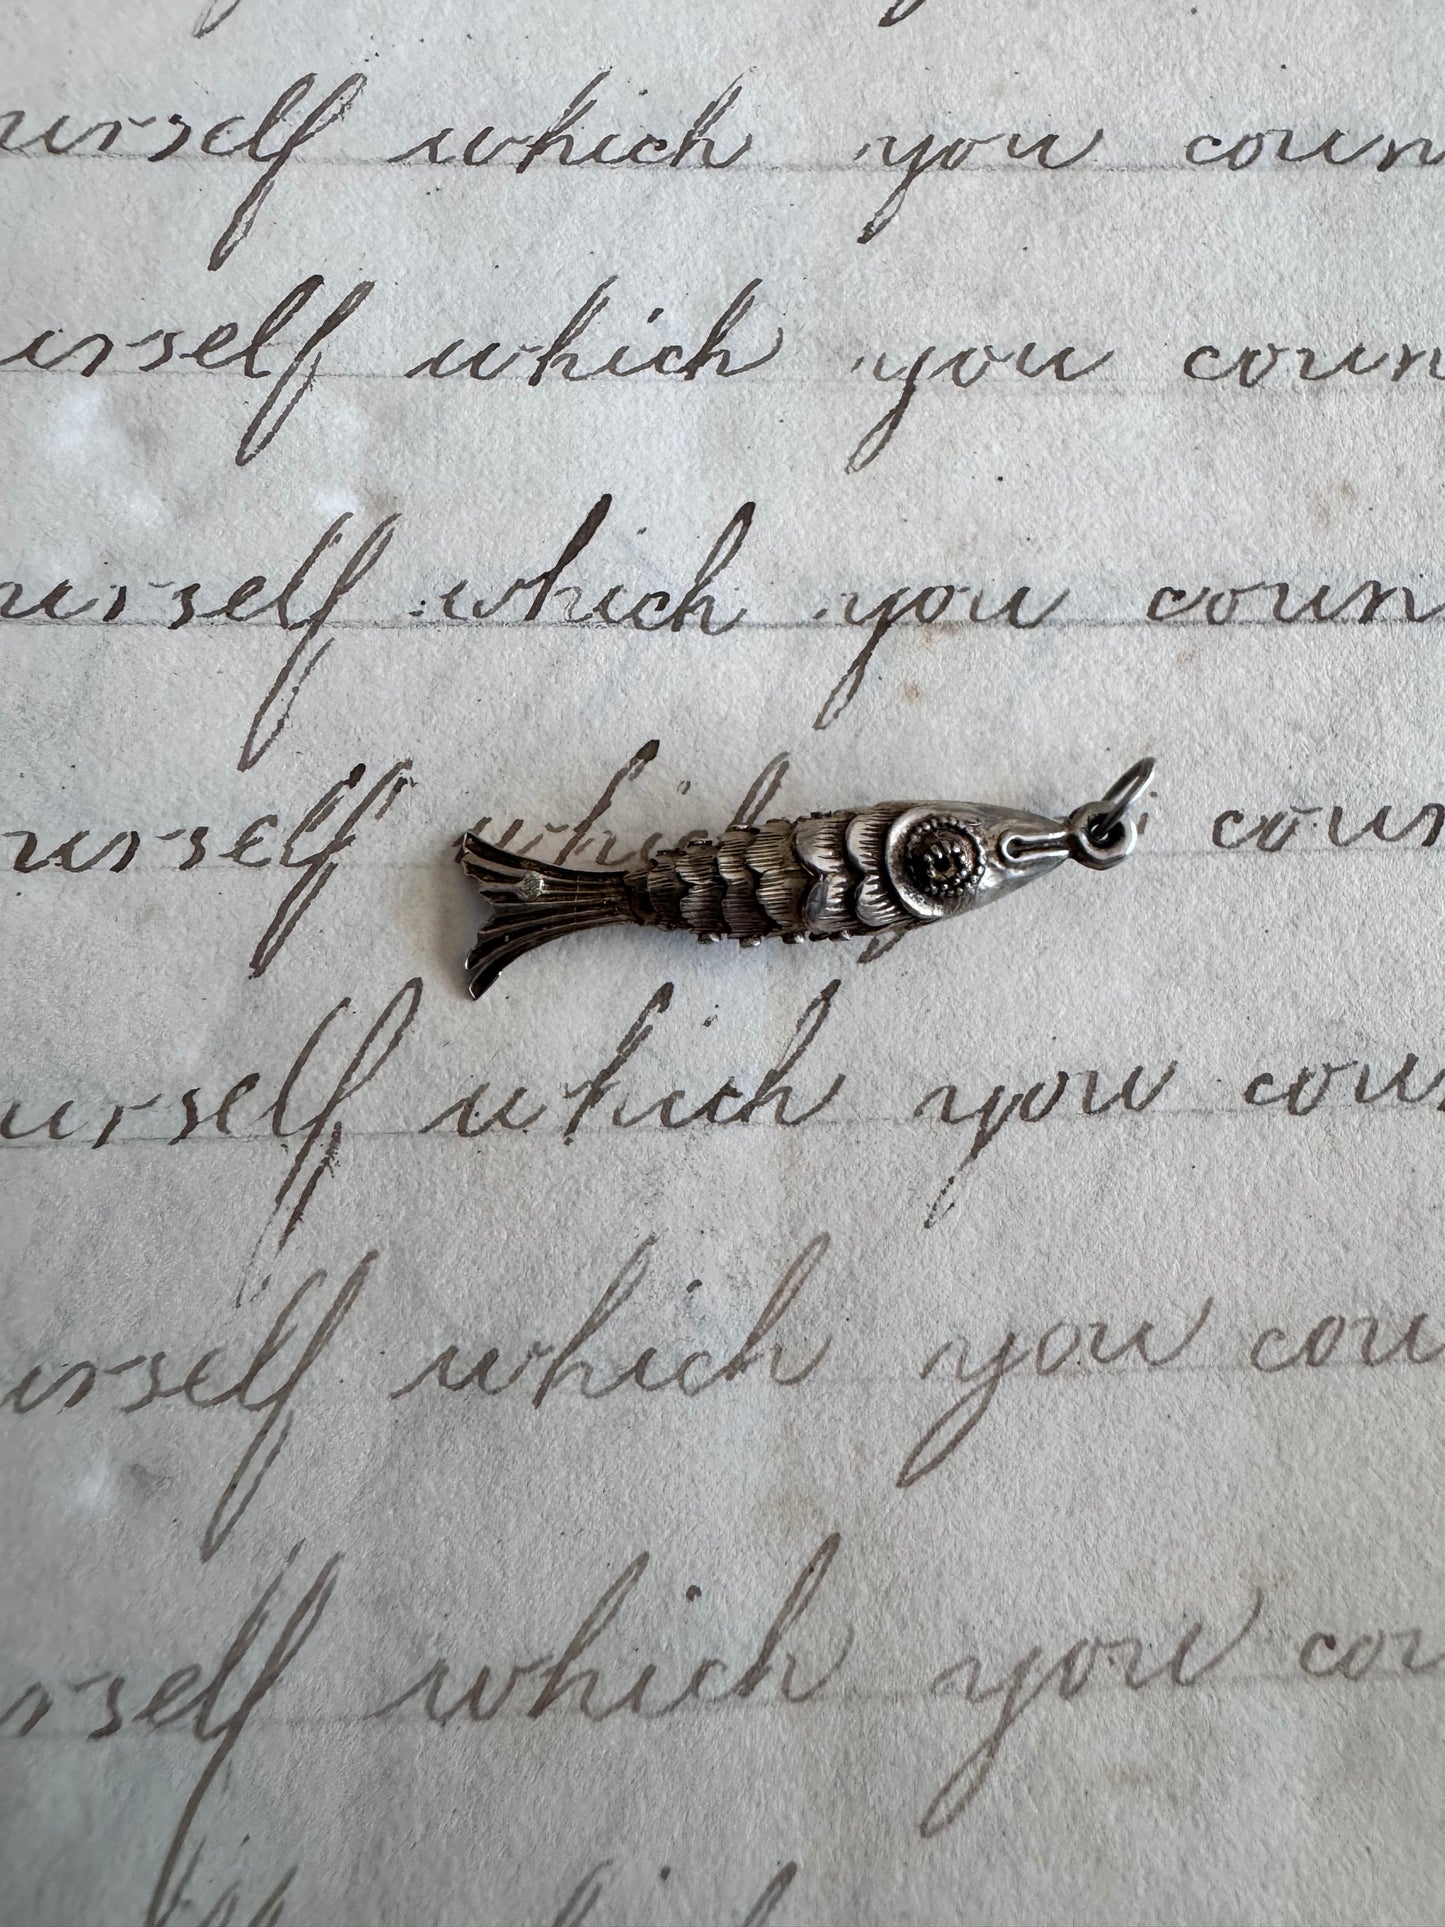 urself which you coun
urself which you coun
urself which you coun
urself which coun
urself which you cou
urself which you cou
rself which you cou